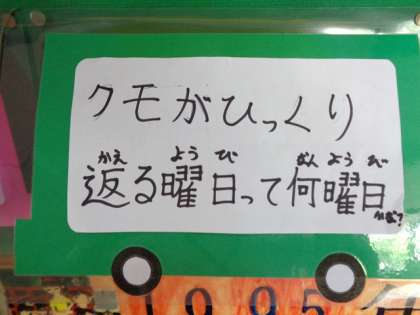 クモがひっくり
かえ よう び なん よう び
返る曜日って何曜日かな?
1995